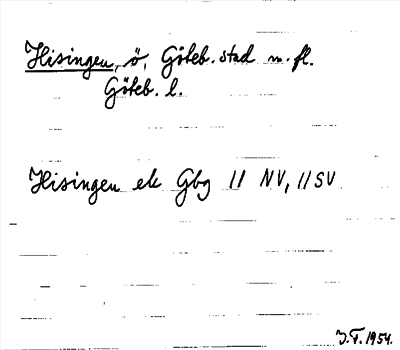 Hisingen, ö, Göteb. stad m. fl.
Göteb. l.
Hisingen ek Gbg 11 NV, 11 SV
J.F. 1954.